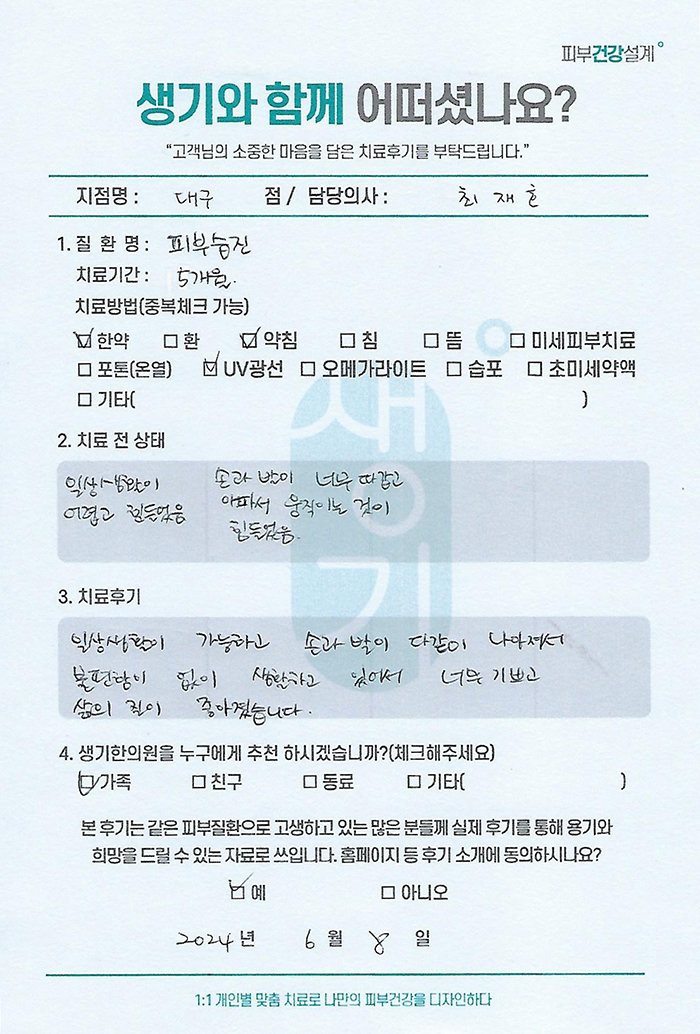 피부건강설계
생기와 함께 어떠셨나요?
“고객님의 소중한 마음을 담은 치료후기를 부탁드립니다.”
지점명 : 대구 점 / 담당의사 : 최재호
1. 질 환 명 : 피부습진
치료기간 : 5개월.
치료방법(중복체크 가능)
☑ 한약 □ 환 ☑ 약침 □ 침 □ 뜸 □ 미세피부치료
□ 포톤(온열) ☑ UV광선 □ 오메가라이트 □ 습포 □ 초미세약액
□ 기타( )
2. 치료 전 상태
일상생활이 손과 발이 너무 따갑고
어렵고 힘들었음 아파서 움직이는 것이
힘들었음.
3. 치료후기
일상생활이 가능하고 손과 발이 다같이 나아져서
불편함이 없이 생활하고 있어서 너무 기쁘고
삶의 질이 좋아졌습니다.
생기
4. 생기한의원을 누구에게 추천 하시겠습니까?(체크해주세요)
☑ 가족 □ 친구 □ 동료 □ 기타( )
본 후기는 같은 피부질환으로 고생하고 있는 많은 분들께 실제 후기를 통해 용기와
희망을 드릴 수 있는 자료로 쓰입니다. 홈페이지 등 후기 소개에 동의하시나요?
☑ 예 □ 아니오
2024 년 6 월 8 일
1:1 개인별 맞춤 치료로 나만의 피부건강을 디자인하다